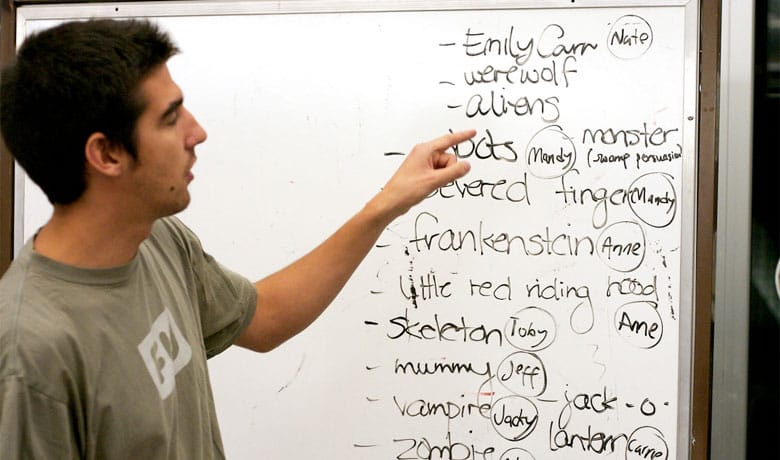 - Emily Carr Nate
- werewolf
- aliens
- bots Mandy - monster
(swamp persuasion)
severed finger Mandy
- frankenstein Anne
- little red riding hood
- skeleton Toby Anne
- mummy Jeff
- vampire Jacky - jack-o-
lantern Carrie
- zombie